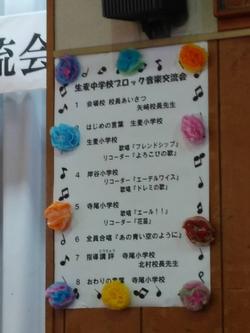 流会
生麦中学校ブロック音楽交流会
1 会場校 校長あいさつ
矢崎校長先生
はじめの言葉 生麦小学校
生麦小学校
歌唱『フレンドシップ』
リコーダー『よろこびの歌』
4 岸谷小学校
リコーダー『エーデルワイス』
歌唱『ドレミの歌』
5 寺尾小学校
歌唱『エール!!』
リコーダー『花笛』
6 全員合唱『あの青い空のように』
7 指導講評 寺尾小学校
北村校長先生
8 おわりの言葉 寺尾小学校